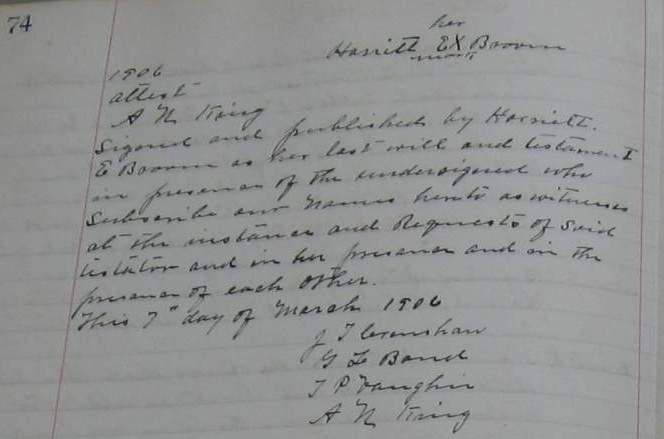 74
her
Harriett EX Broom
mark
1906
attest
A N King
Signed and published by Harriett.
E Broom as her last will and testament
in presence of the undersigned who
Subscribe our Names hereto as witnesses
at the instance and Requests of Said
testator and in her presence and in the
presence of each other.
This 7" day of March 1906
J T Crenshaw
G L Bond
T P Vaughn
A N King